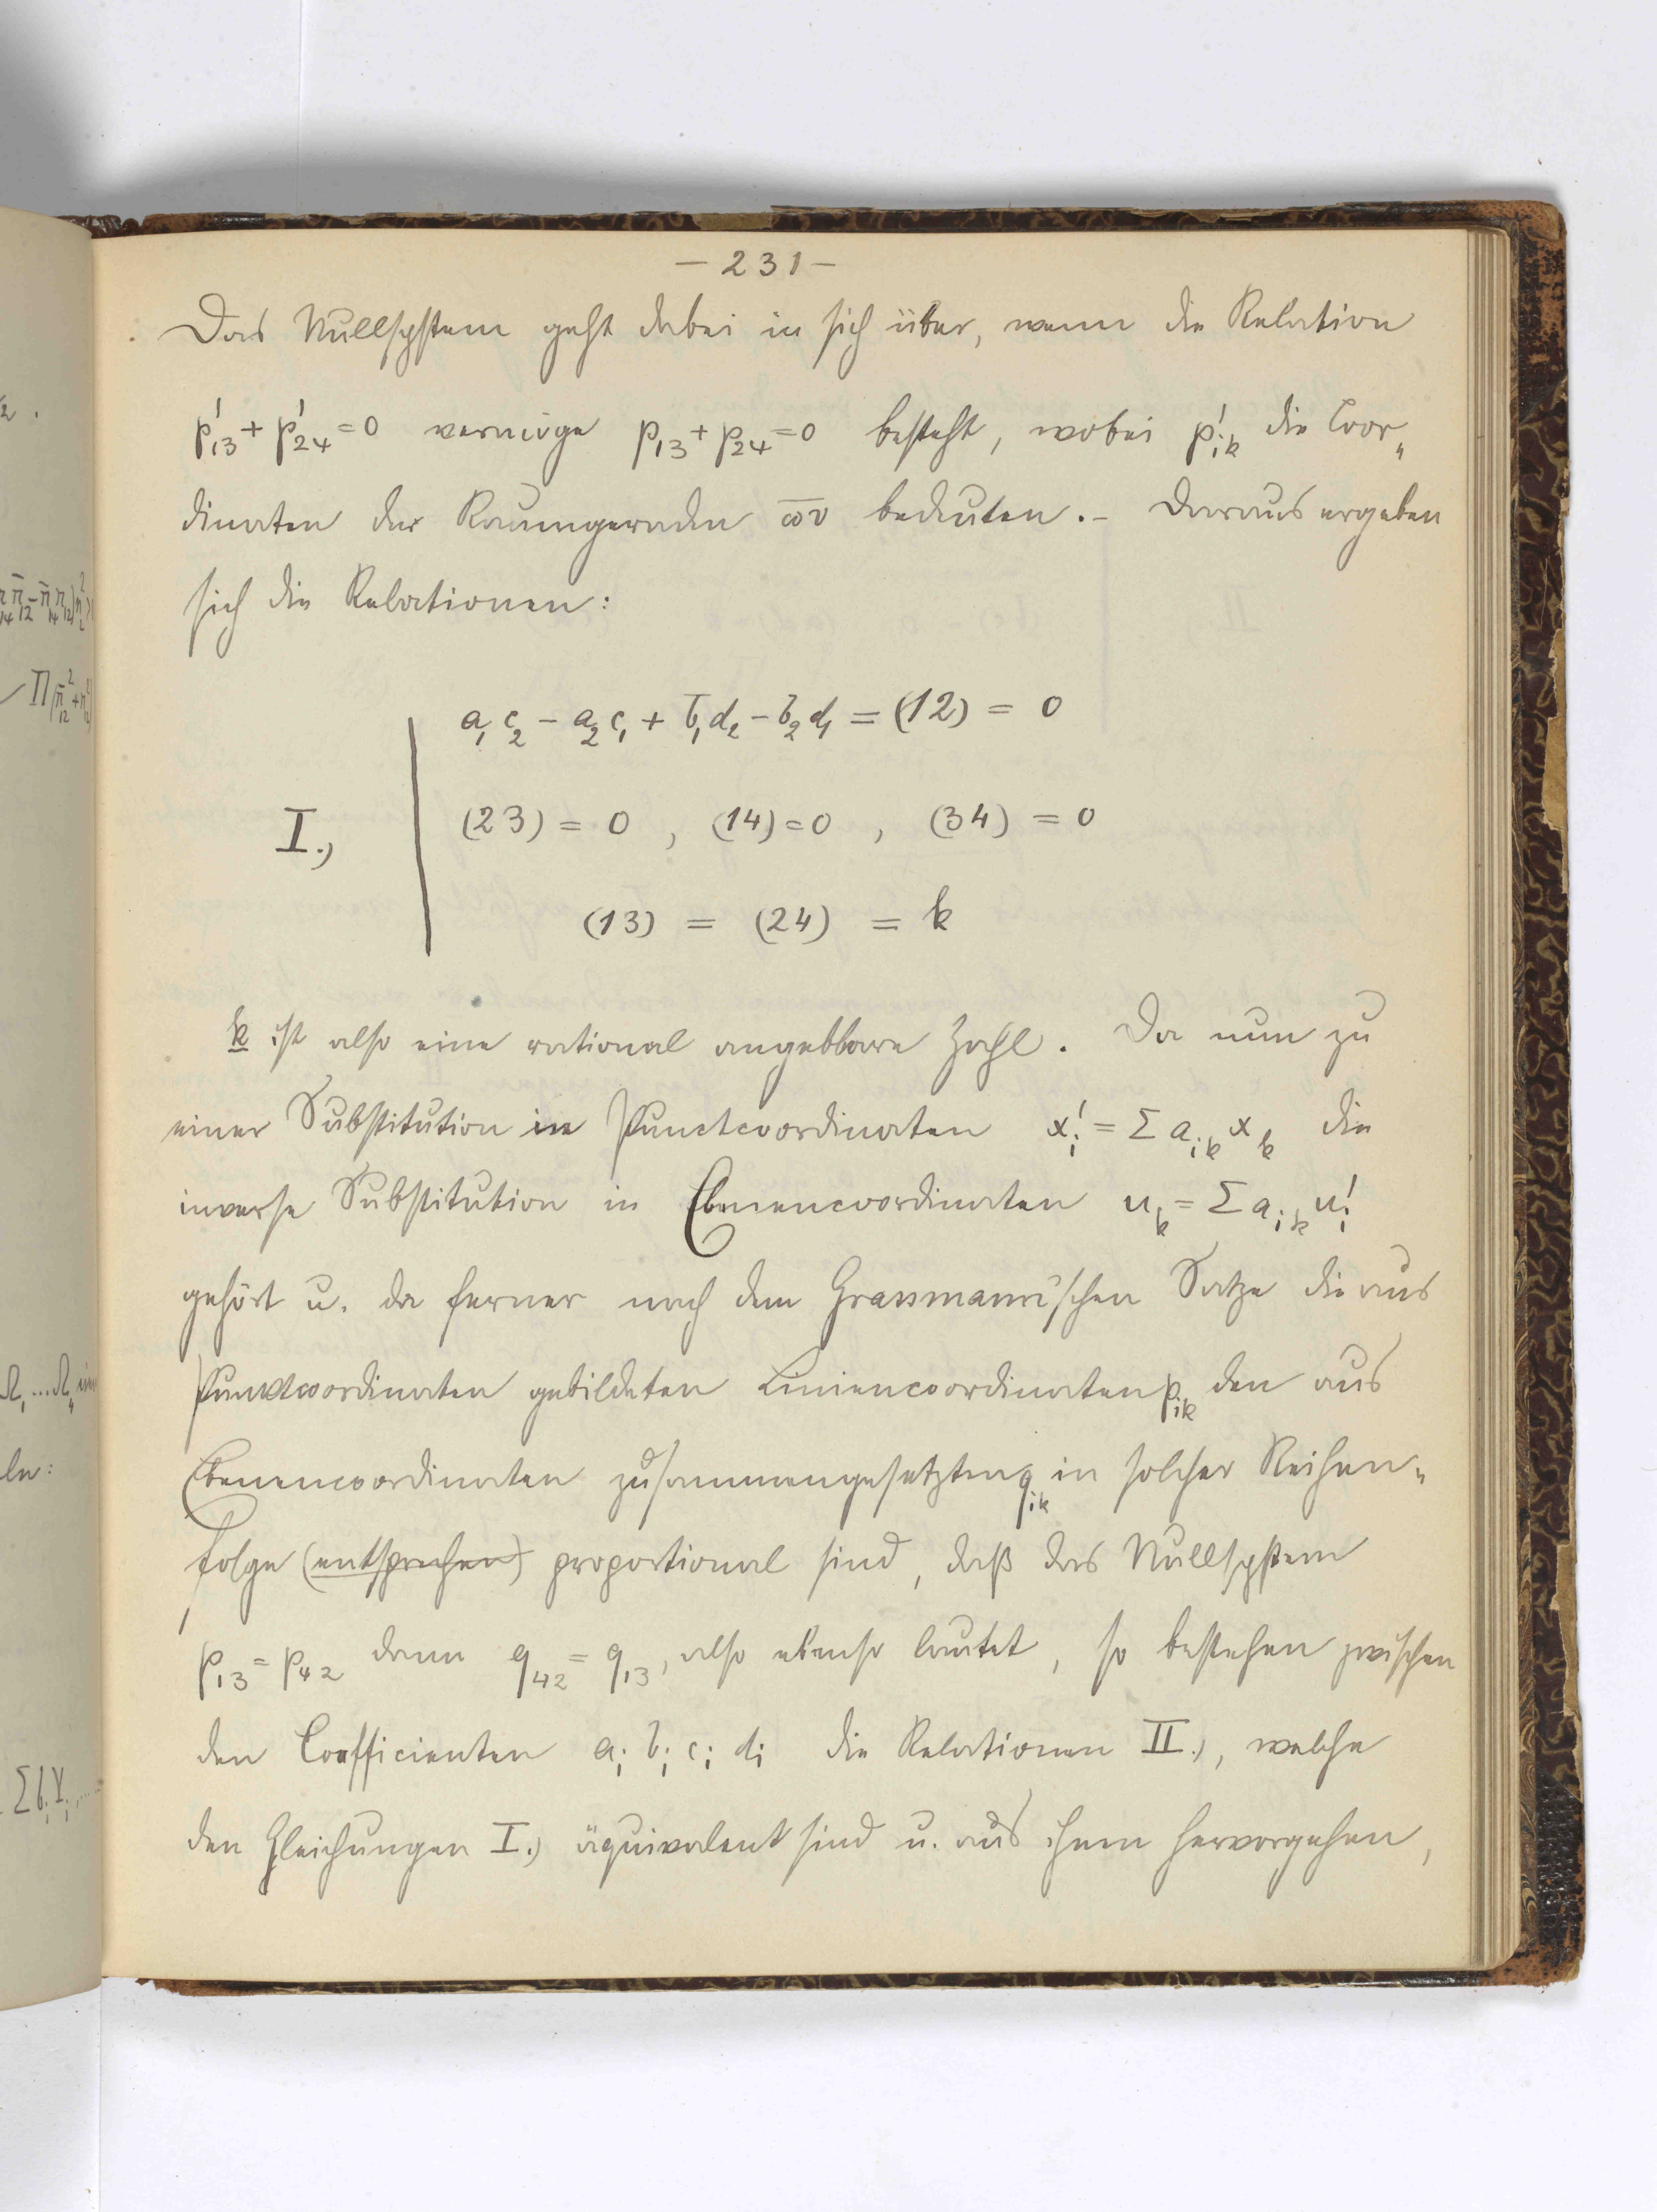 — 231 —
Das Nullsystem geht dabei in sich über, wenn die Relation
p'₁₃ + p'₂₄ = 0 vermöge p₁₃ + p₂₄ = 0 besteht, wobei p'ᵢₖ die Coor„
dinaten der Raumgeraden ω̅v̅ bedeuten. – Daraus ergeben
sich die Relationen:
a₁c₂ − a₂c₁ + b₁d₂ − b₂d₁ = (12) = 0
I.) (23) = 0 , (14) = 0 , (34) = 0
(13) = (24) = k
k ist also eine rational angebbare Zahl. Da nun zu
einer Substitution in Punctcoordinaten x'ᵢ = Σ aᵢₖ xₖ die
inverse Substitution in Ebenencoordinaten uₖ = Σ aᵢₖ u'ᵢ
gehört u. da ferner nach dem Grassmann'schen Satze die aus
Punktcoordinaten gebildeten Liniencoordinaten pᵢₖ den aus
Ebenencoordinaten zusammengesetzten qᵢₖ in solcher Reihen„
folge (entsprechen) proportional sind, daß das Nullsystem
p₁₃ = p₄₂ dann q₄₂ = q₁₃, also ebenso lautet, so bestehen zwischen
den Coefficienten aᵢ bᵢ cᵢ dᵢ die Relationen II.), welche
den Gleichungen I.) äquivalent sind u. aus ihnen hervorgehen,